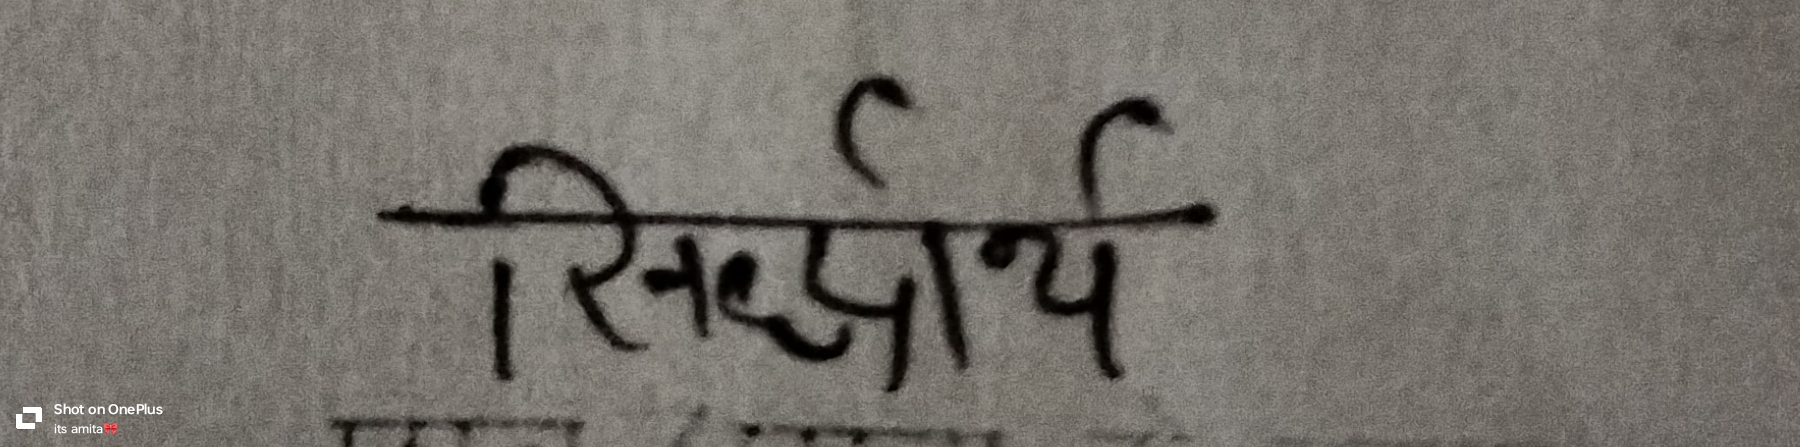 सिर्द्धार्थ
Shot on OnePlus
its amita